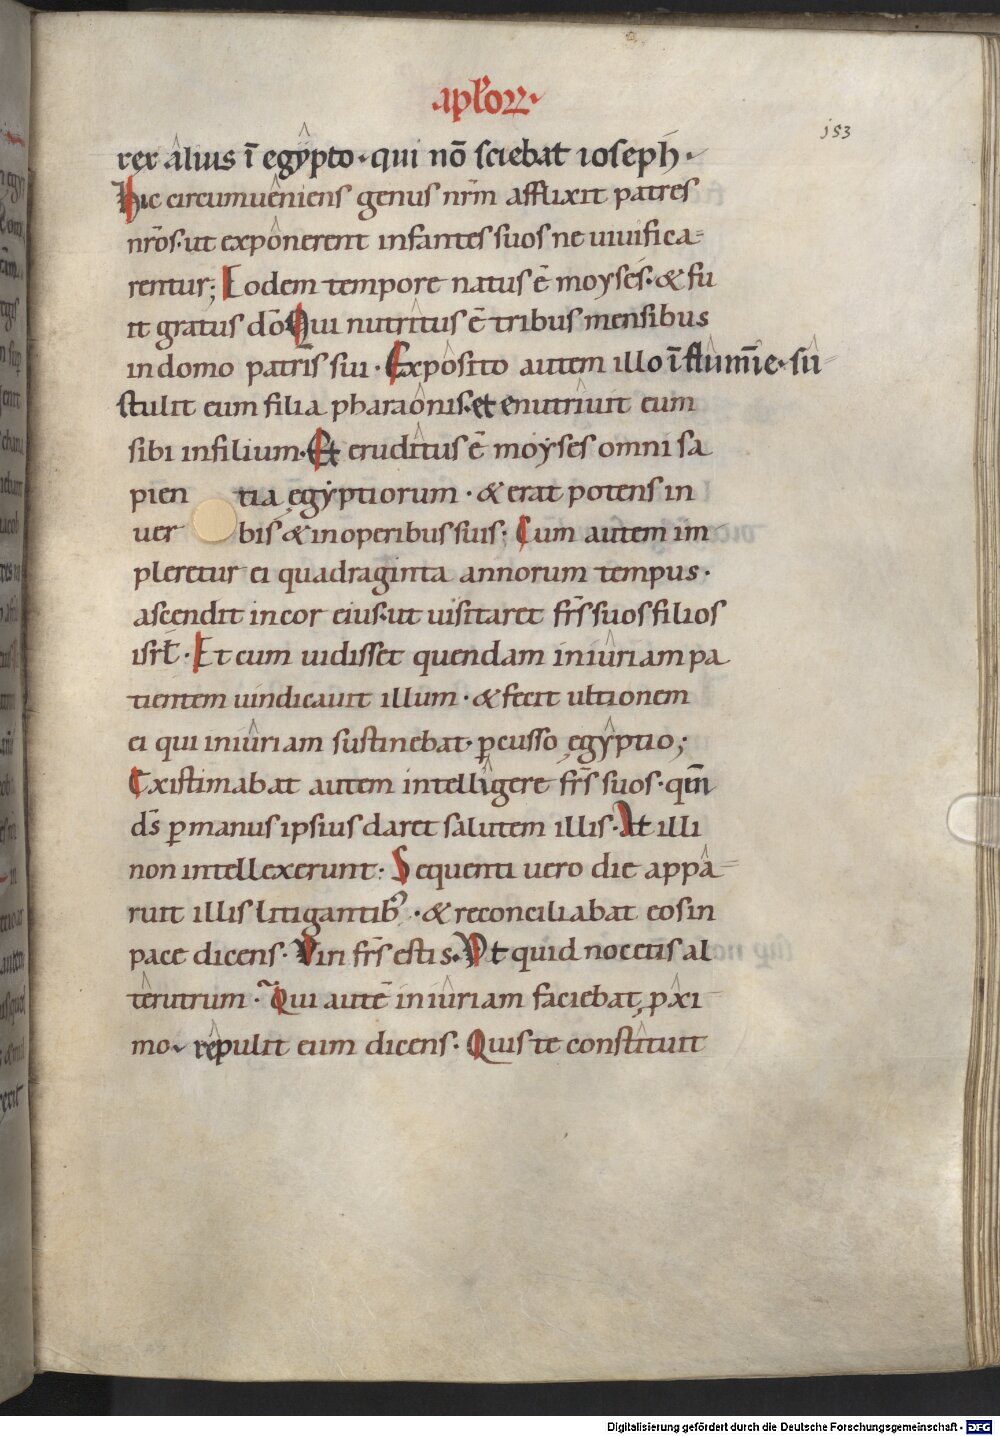 apl'oꝝ·
153
rex alius ī egypto· qui nō sciebat ioseph·
Hic circumueniens genus nr̄m afflixit patres
nr̄os· ut exponerent infantes suos ne uiuifica-
rentur; Eodem tempore natus ē moyses· & fu
it gratus dō Qui nutritus ē tribus mensibus
in domo patris sui· Exposito autem illo ī flumīe· su
stulit eum filia pharaonis· et enutriuit eum
sibi in filium· Et eruditus ē moyses omni sa
pien tia egyptiorum· & erat potens in
uer bis & in operibus suis· Cum autem im
pleretur ei quadraginta annorum tempus·
ascendit in cor eius· ut uisitaret fr̄s suos filios
isrł· Et cum uidisset quendam iniuriam pa
tientem uindicauit illum· & fecit ultionem
ei qui iniuriam sustinebat· ꝑcusso egyptio;
Existimabat autem intelligere fr̄s suos· qm̄
ds̄ ꝑ manus ipsius daret salutem illis· At illi
non intellexerunt· Sequenti uero die appa-
ruit illis litigantib; · & reconciliabat eos in
pace dicens· Viri fr̄s estis· Vt quid nocetis al
terutrum· Qui autē iniuriam faciebat ꝓxi
mo· repulit eum dicens· Quis te constituit
Digitalisierung gefördert durch die Deutsche Forschungsgemeinschaft - DFG